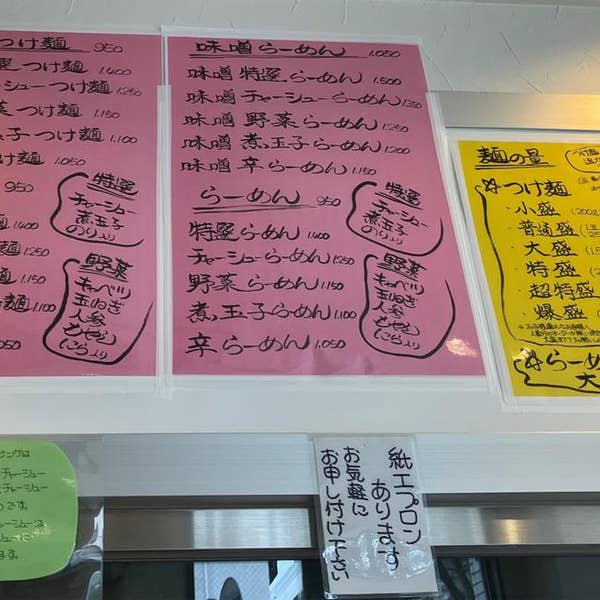 つけ麺 950
つけ麺 1.400
シューつけ麺 1.250
つけ麺 1.150
玉子つけ麺 1.100
け麺 1.050
950
1.400
1.250
1.150
麺 1.100
1.050
特選
チャーシュー
煮玉子
のり入り
野菜
キャベツ
玉ねぎ
人参
もやし
にら入り
味噌らーめん 1.050
味噌特選らーめん 1.500
味噌チャーシューらーめん 1.350
味噌野菜らーめん 1.250
味噌煮玉子らーめん 1.200
味噌辛らーめん 1.150
らーめん 950
特選らーめん 1.400
チャーシューらーめん 1.250
野菜らーめん 1.150
煮玉子らーめん 1.100
辛らーめん 1.050
特選
チャーシュー
煮玉子
のり入り
野菜
キャベツ
玉ねぎ
人参
もやし
にら入り
麺の量
☆つけ麺
・小盛
・普通盛
・大盛
・特盛
・超特盛
・爆盛
☆らーめ
大
チャーシュー
チャーシュー
です。
ます。
紙エプロン
あります
お気軽に
お申し付け下さい